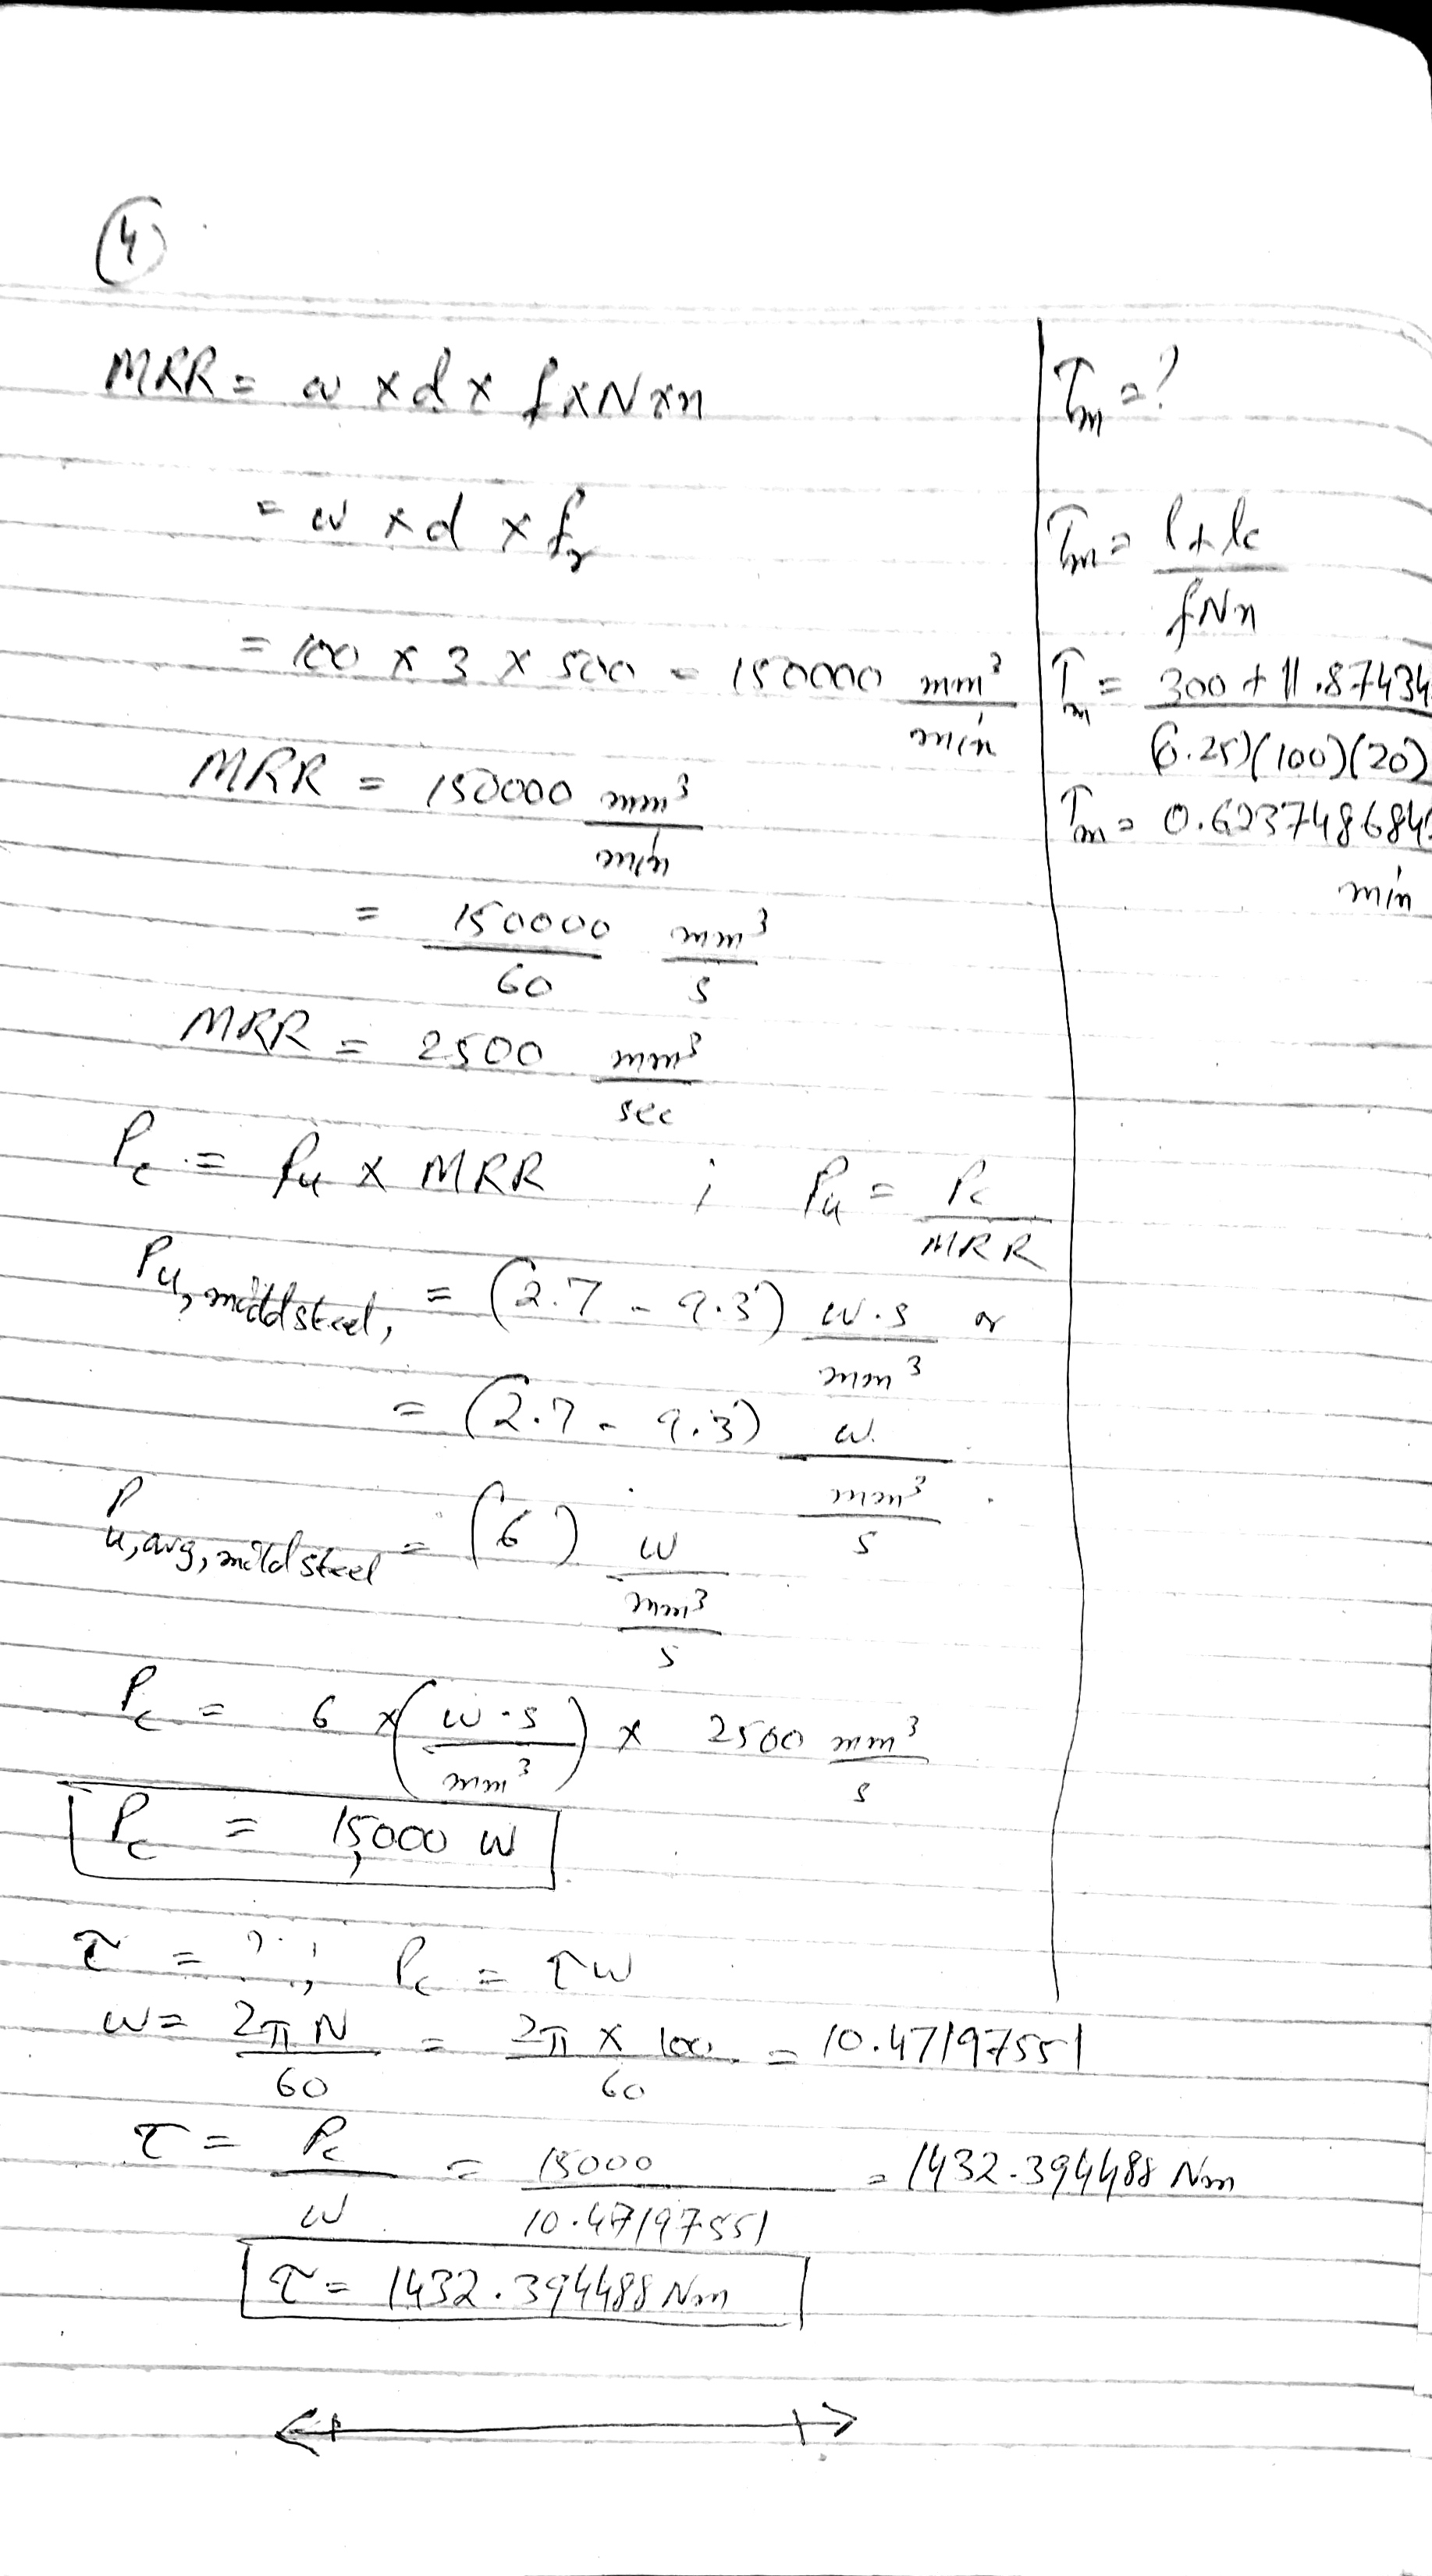 4
MRR = w x d x f x N x n
= w x d x fr
= 100 x 3 x 500 = 150000 mm³/min
MRR = 150000 mm³/min
= 150000/60 mm³/s
MRR = 2500 mm³/sec
Pc = Pu x MRR ; Pu = Pc/MRR
Pu, mild steel, = (2.7 - 9.3) W.s/mm³ or
= (2.7 - 9.3) W/mm³/s
Pu, avg, mild steel = (6) W/mm³/s
Pc = 6 x (W-s/mm³) x 2500 mm³/s
Pc = 15,000 W
τ = ? ; Pc = τω
ω = 2πN/60 = 2π x 100/60 = 10.47197551
τ = Pc/ω = 15000/10.47197551 = 1432.394488 Nm
τ = 1432.394488 Nm
Tm = ?
Tm = l + lc/fNn
Tm = 300 + 11.87434/(0.25)(100)(20)
Tm = 0.623748684
min